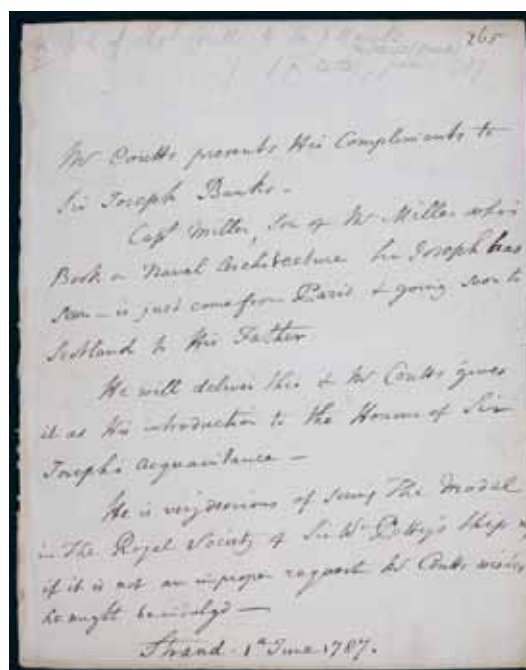 265
Mr Coutts presents His Compliments to
Sir Joseph Banks -
Capt Miller, Son of Mr Miller whose
Book on Naval Architecture Sir Joseph has
seen - is just come from Paris & going soon to
Scotland to His Father
He will deliver this & Mr Coutts gives
it as His introduction to the Honour of Sir
Joseph's acquaintance -
He is very desirous of seeing The Model
in The Royal Society of Sir Wm Petty's Ship &
if it is not an improper request Mr Coutts wishes
he might be indulg'd -
Strand - 1st June 1787.